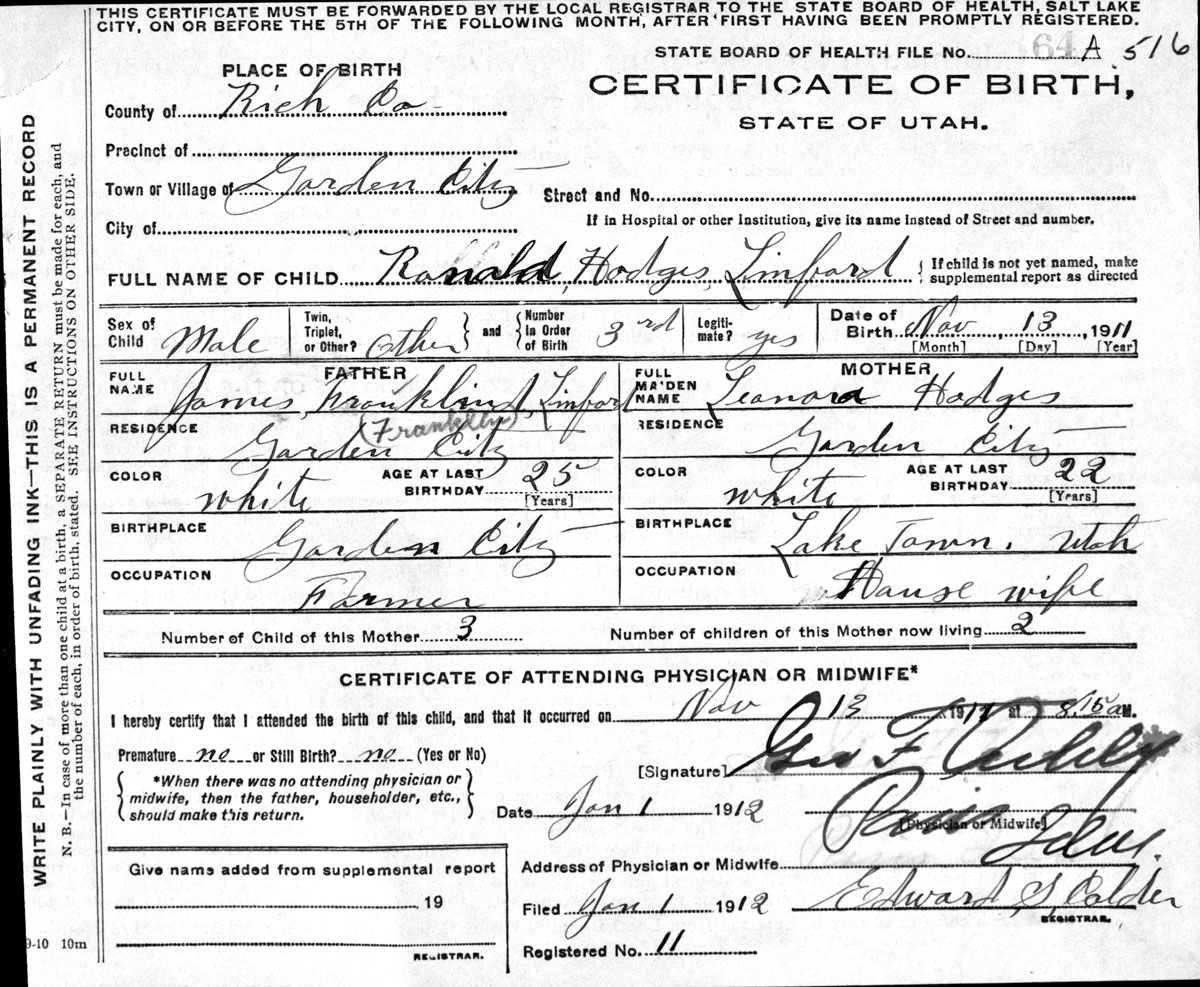 THIS CERTIFICATE MUST BE FORWARDED BY THE LOCAL REGISTRAR TO THE STATE BOARD OF HEALTH, SALT LAKE
CITY, ON OR BEFORE THE 5TH OF THE FOLLOWING MONTH, AFTER FIRST HAVING BEEN PROMPTLY REGISTERED.
STATE BOARD OF HEALTH FILE No. 64 A 516
PLACE OF BIRTH
CERTIFICATE OF BIRTH,
STATE OF UTAH.
County of Rich Co
Precinct of
Town or Village of Garden City Street and No.
If in Hospital or other Institution, give its name instead of Street and number.
City of
FULL NAME OF CHILD Ronald, Hodges, Linford { If child is not yet named, make
supplemental report as directed
Sex of Child Male Twin, Triplet, or Other? Other and Number In Order of Birth 3rd Legiti-mate? yes Date of Birth Nov, 13, 1911
[Month] [Day] [Year]
FATHER MOTHER
FULL NAME James, Franklind, Linford FULL MAIDEN NAME Leonora Hodges
(Franklin)
RESIDENCE Garden City RESIDENCE Garden City
COLOR white AGE AT LAST BIRTHDAY 25 [Years] COLOR white AGE AT LAST BIRTHDAY 22 [Years]
BIRTHPLACE Garden City BIRTHPLACE Lake Town. Utah
OCCUPATION Farmer OCCUPATION Hause wife
Number of Child of this Mother 3 Number of children of this Mother now living 2
CERTIFICATE OF ATTENDING PHYSICIAN OR MIDWIFE*
I hereby certify that I attended the birth of this child, and that it occurred on Nov 13 1911 at 8,15 a M.
Premature no or Still Birth? no (Yes or No)
[Signature] Geo F
*When there was no attending physician or
midwife, then the father, householder, etc.,
should make this return.
Date Jan 1 1912
[Physician or Midwife]
Address of Physician or Midwife
Give name added from supplemental report
19
REGISTRAR.
Filed Jan 1 1912 Edward S, Calder
REGISTRAR.
Registered No. 11
9-10 10m
WRITE PLAINLY WITH UNFADING INK—THIS IS A PERMANENT RECORD
N. B.—In case of more than one child at a birth, a SEPARATE RETURN must be made for each, and
the number of each, in order of birth, stated. SEE INSTRUCTIONS ON OTHER SIDE.